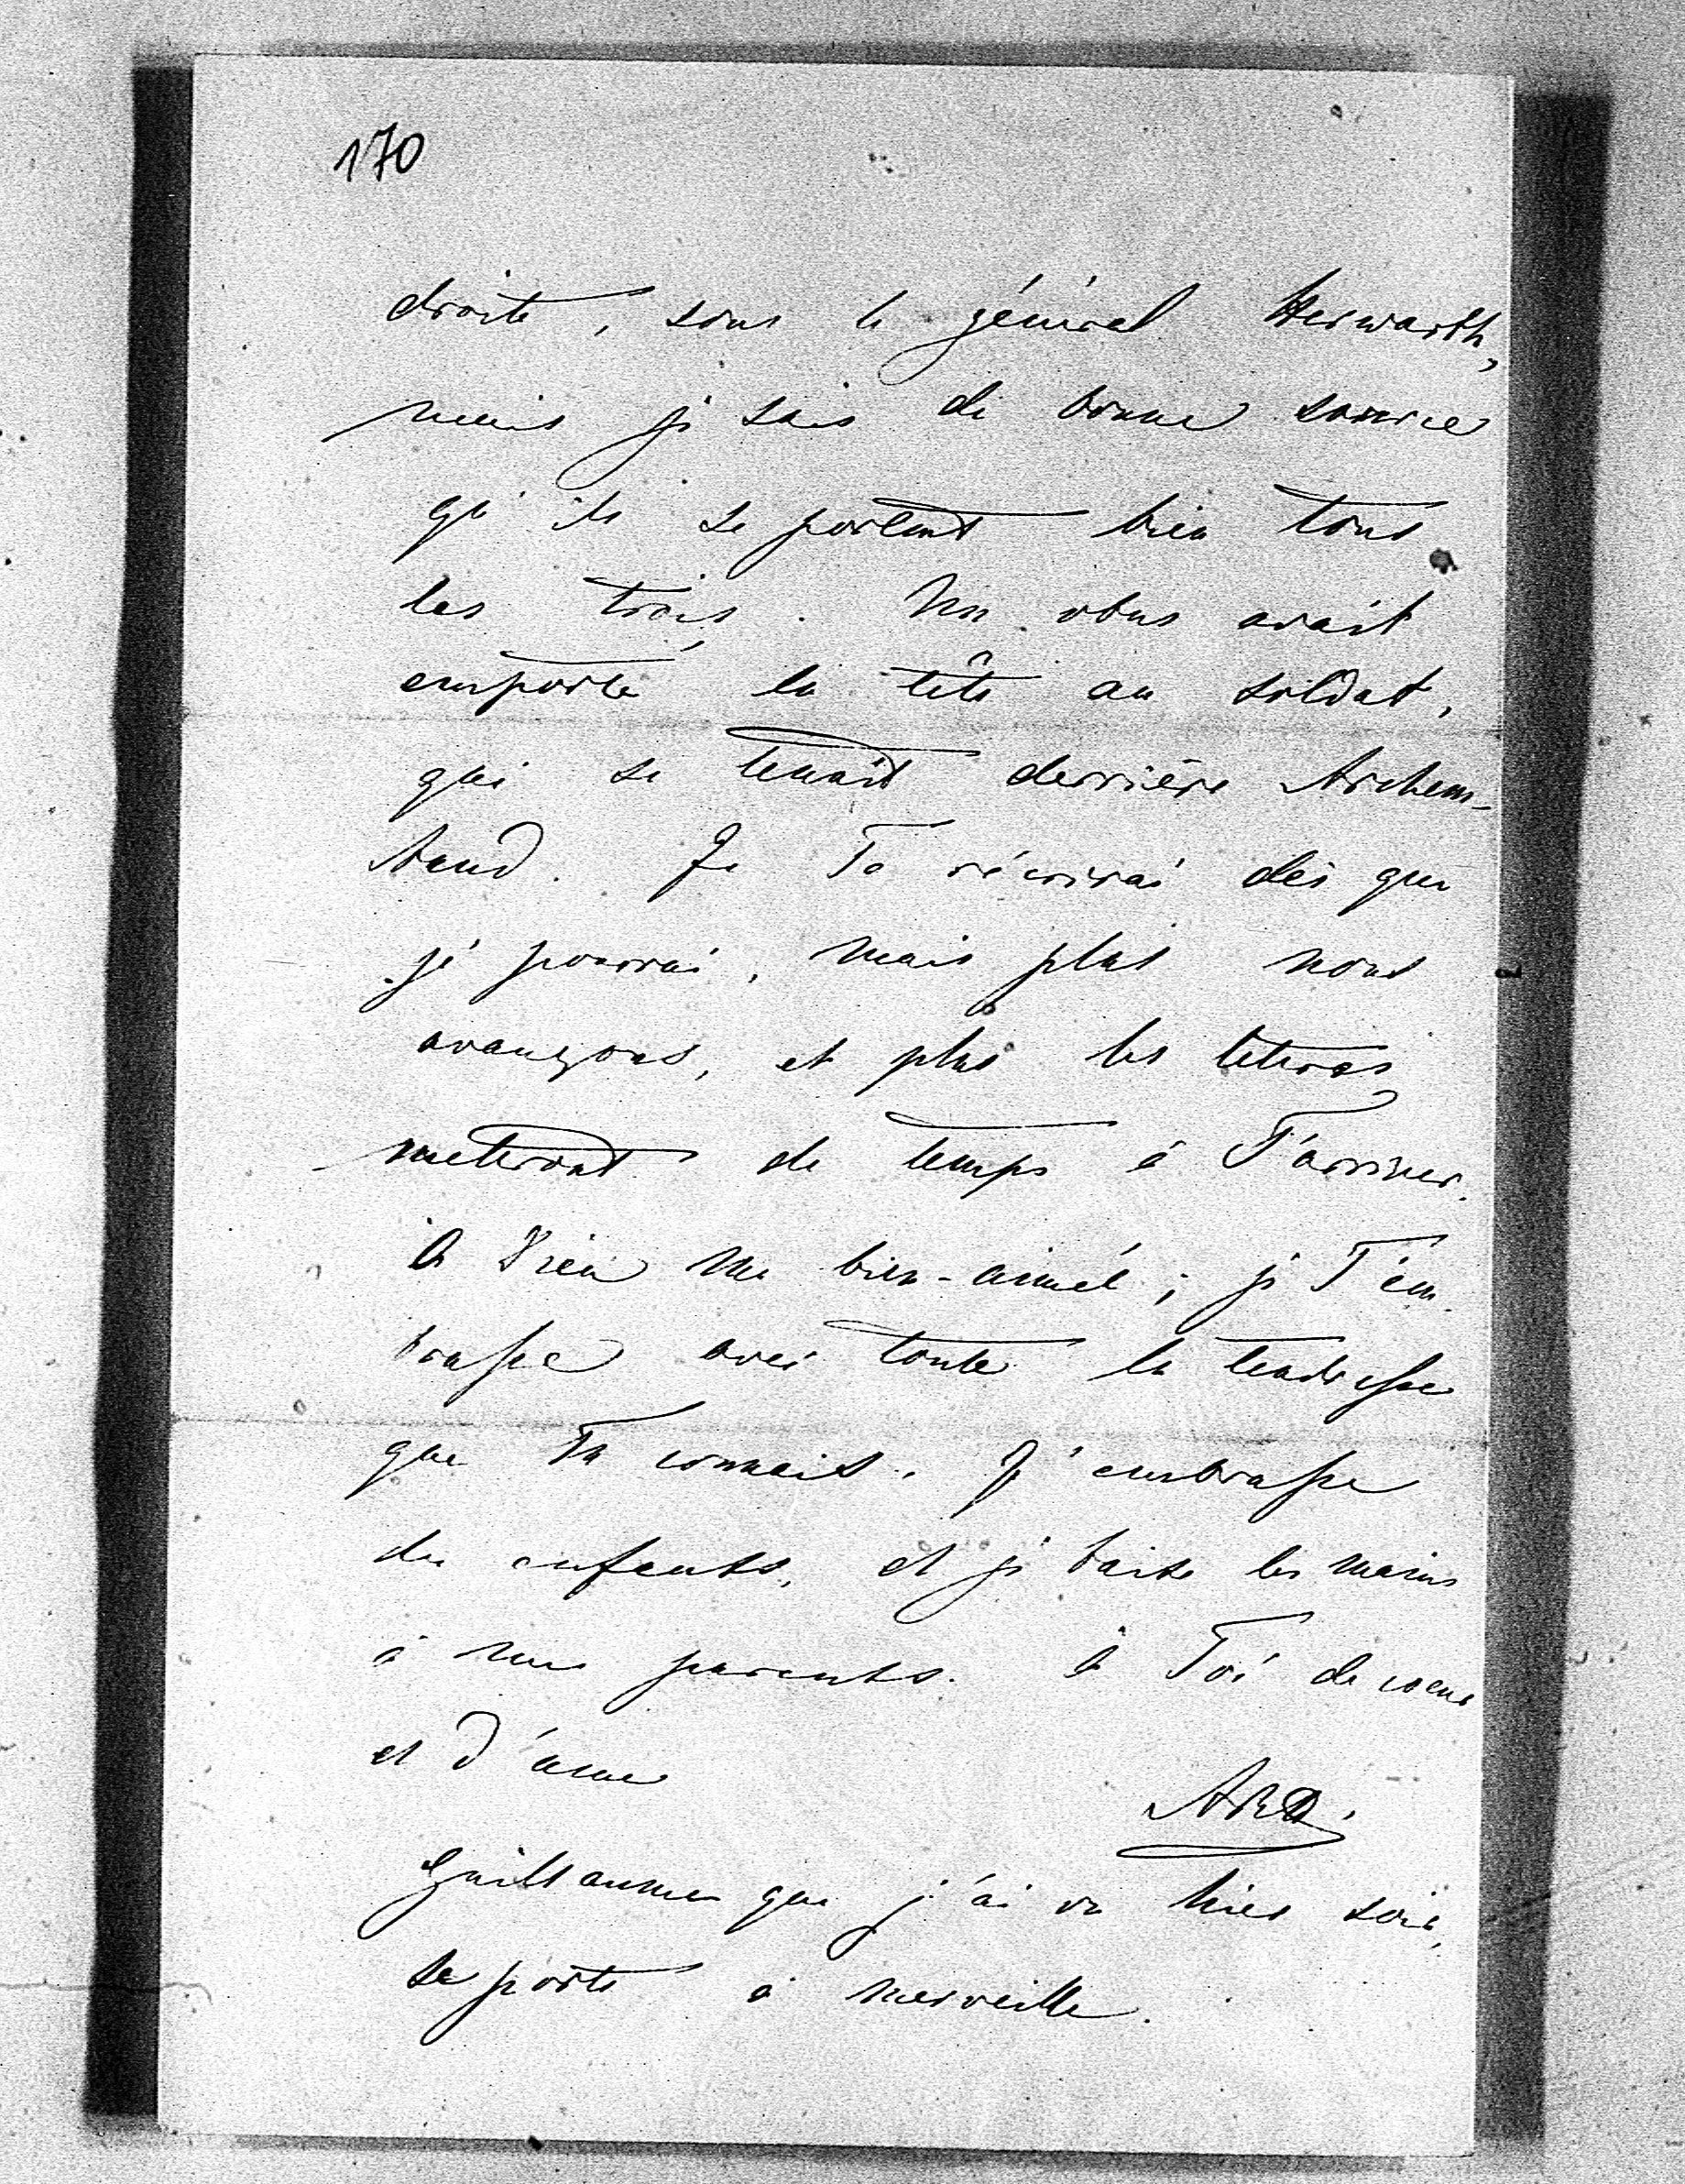 170
droite, sous le général Herwarth,
mais je sais de bonne source
qu'ils se portent bien tous
les trois. Un obus avait
emporté la tête au soldat,
qui se tenait derrière Archam-
baud. Je Te récrirai dès que
je pourrai, mais plus nous
avançons, et plus les lettres
metteront de temps à T'arriver.
A Dieu ma bien-aimée; je T'em-
brasse avec toute la tendresse
que Tu connais. J'embrasse
les enfants, et je baise les mains
à mes parents. à Toi de coeur
et d'âme
Guillaume que j'ai vu hier soir,
se porte à merveille.